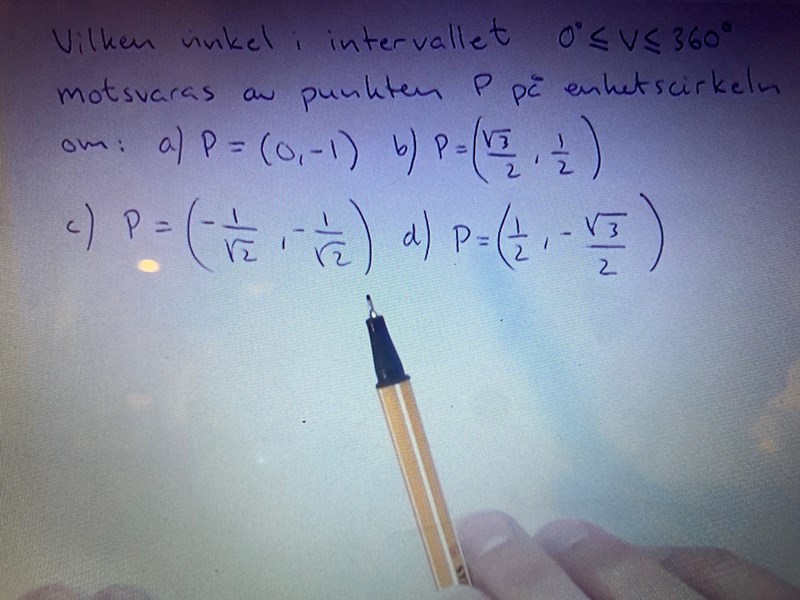 Vilken vinkel i intervallet 0° ≤ V ≤ 360°
motsvaras av punkten P på enhetscirkeln
om: a) P = (0, -1) b) P = (√3/2, 1/2)
c) P = (-1/√2, -1/√2) d) P = (1/2, -√3/2)